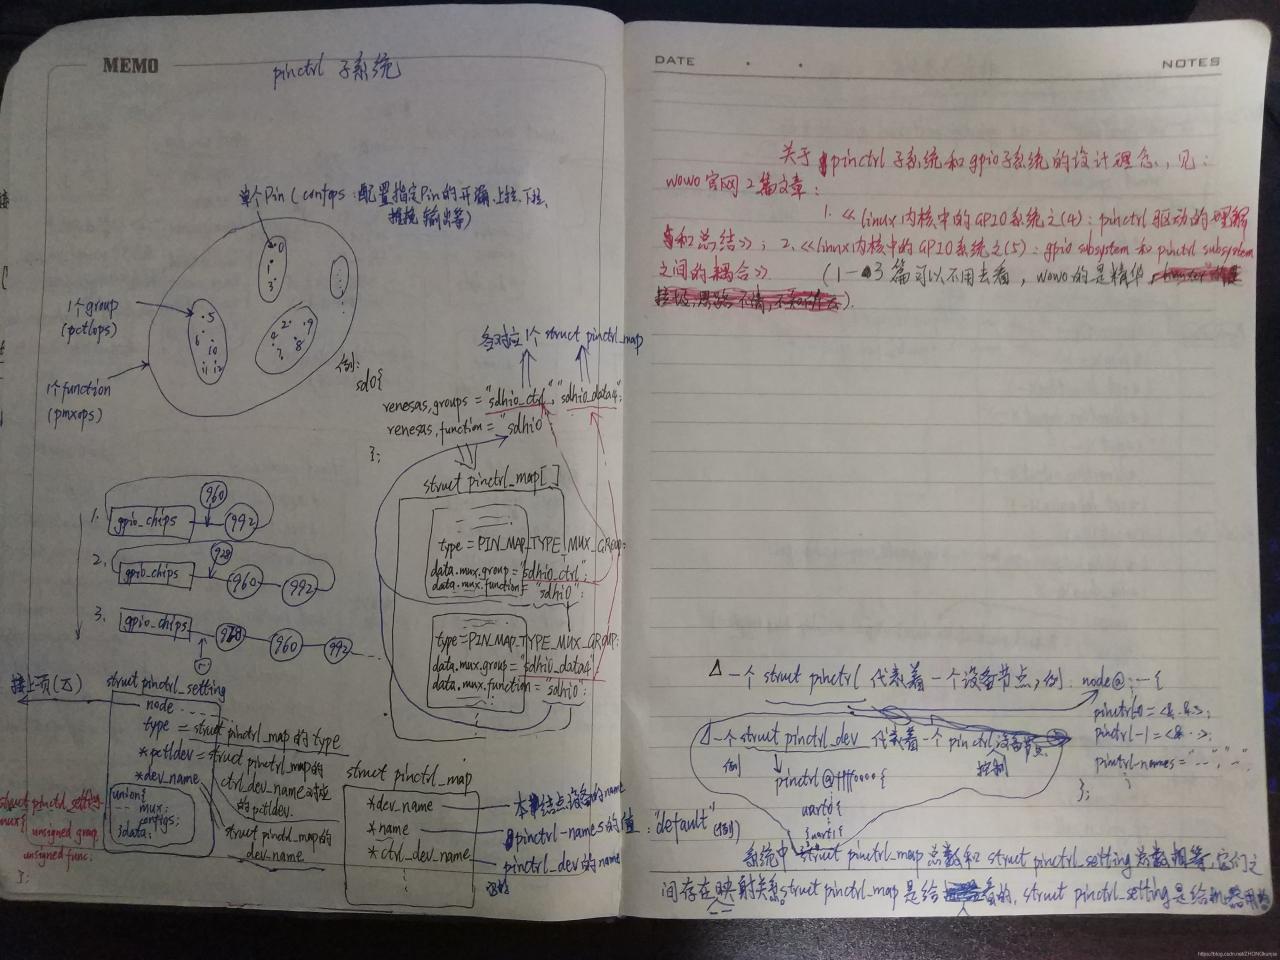 MEMO
pinctrl 子系统
单个Pin (confops:配置指定Pin的开漏、上拉、下拉、
推挽输出等)
0
1
3
1个group
(pctlops)
5
6
10
11 12
2 9
4
7 8
1个function
(pmxops)
例:
各对应1个struct pinctrl_map
sd0{
renesas,groups = "sdhi0_ctrl", "sdhi0_data4";
renesas,function = "sdhi0"
};
struct pinctrl_map[]
type = PIN_MAP_TYPE_MUX_GROUP;
data.mux.group = "sdhi0_ctrl";
data.mux.function = "sdhi0";
type = PIN_MAP_TYPE_MUX_GROUP;
data.mux.group = "sdhi0_data4"
data.mux.function = "sdhi0";
960
1. gpio_chips 992
928
2. gpio_chips 960 992
3. gpio_chips 960 992
接上页(五)
struct pinctrl_setting
node
type = struct pinctrl_map的type
*pctldev = struct pinctrl_map的
ctrl_dev_name对应
的pctldev.
*dev_name
struct pinctrl_map的
dev_name
union{
mux;
configs;
}data;
struct pinctrl_setting
mux{
unsigned group
unsigned func.
};
struct pinctrl_map
*dev_name 结点设备的name
*name pinctrl-names的值 "default"
*ctrl_dev_name pinctrl_dev的name
DATE
NOTES
关于pinctrl子系统和gpio子系统的设计理念,见:
wowo官网2篇文章:
1.《linux内核中的GPIO系统之(4):pinctrl驱动的理解
和总结》; 2.《linux内核中的GPIO系统之(5):gpio subsystem 和 pinctrl subsystem
之间的耦合》 (1-3篇可以不用去看, wowo的是精华
).
△一个struct pinctrl 代表着一个设备节点,例: node@...{
pinctrl-0 = <&.&.>;
pinctrl-1 = <&..>;
pinctrl-names = "--","-
};
△一个struct pinctrl_dev 代表着一个pinctrl设备节点
控制
例
pinctrl@ffff0000{
uart0{
}uart1{
系统中struct pinctrl_map总数和struct pinctrl_setting总数相等,它们之
间存在映射关系。struct pinctrl_map是给看的, struct pinctrl_setting是给机器用的
https://blog.csdn.net/ZHONGkunjia